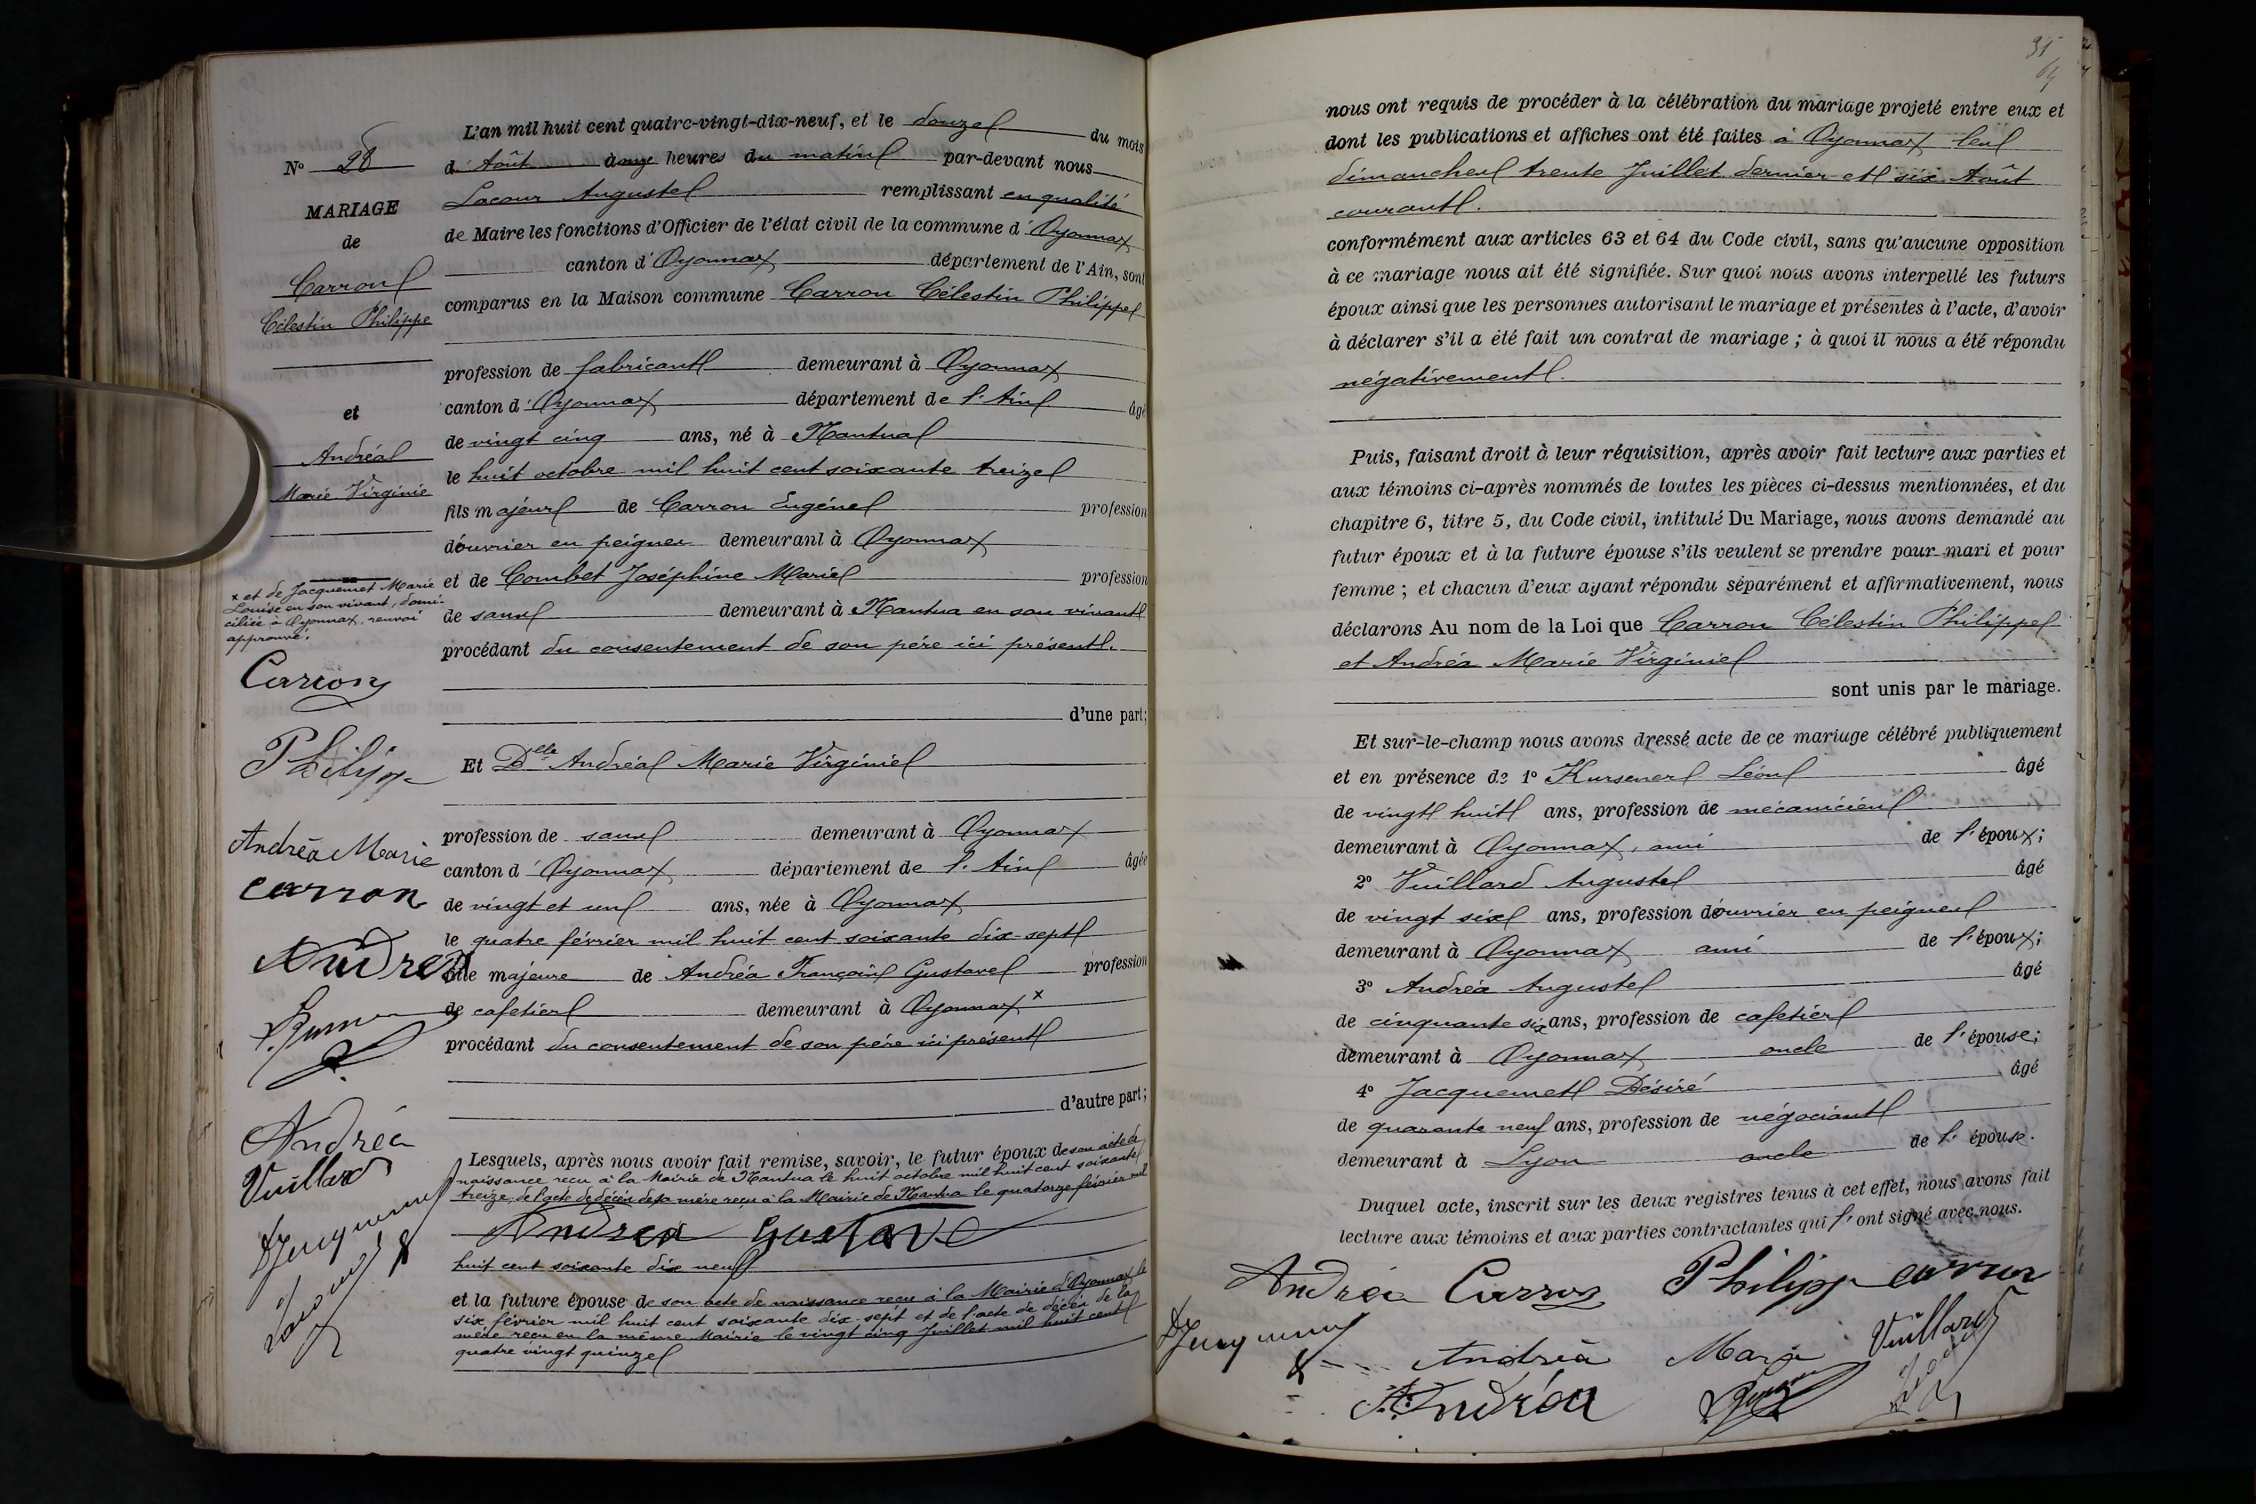 L'an mil huit cent quatre-vingt-dix-neuf, et le douze du mois
d'Août à onze heures du matin par-devant nous
Lacour Auguste remplissant en qualité
de Maire les fonctions d'Officier de l'état civil de la commune d'Oyonnax
canton d'Oyonnax département de l'Ain, sont
comparus en la Maison commune Carron Célestin Philippe
profession de fabricant demeurant à Oyonnax
canton d'Oyonnax département de l'Ain âgé
de vingt cinq ans, né à Nantua
le huit octobre mil huit cent soixante treize
fils majeur de Carron Eugène profession
d'ouvrier en peignes demeurant à Oyonnax
et de Combet Joséphine Marie profession
de sans demeurant à Nantua en son vivant
procédant du consentement de son père ici présent.
d'une part;
Et Dlle Andréa Marie Virginie
profession de sans demeurant à Oyonnax
canton d'Oyonnax département de l'Ain âgée
de vingt et un ans, née à Oyonnax
le quatre février mil huit cent soixante dix-sept
fille majeure de Andréa François Gustave profession
de cafetier demeurant à Oyonnax x
procédant du consentement de son père ici présent
d'autre part;
Lesquels, après nous avoir fait remise, savoir, le futur époux de son acte de
naissance reçu à la Mairie de Nantua le huit octobre mil huit cent soixante
treize, de l'acte de décès de sa mère reçu à la Mairie de Nantua le quatorze février mil
Andréa Gustave
huit cent soixante dix neuf
et la future épouse de son acte de naissance reçu à la Mairie d'Oyonnax le
six février mil huit cent soixante dix-sept et de l'acte de décès de la
mère reçu en la même Mairie le vingt cinq Juillet mil huit cent
quatre vingt quinze
No 28
MARIAGE
de
Carron
Célestin Philippe
et
Andréa
Marie Virginie
x et de Jacquemet Marie
Louise en son vivant, domi-
ciliée à Oyonnax, renvoi
approuvé.
Carron
Philipp
Andréa Marie
carron
Andréa
Andréa
Vuillard
DJacquemet
35
64
nous ont requis de procéder à la célébration du mariage projeté entre eux et
dont les publications et affiches ont été faites à Oyonnax les
dimanches trente Juillet dernier et six Août
courant.
conformément aux articles 63 et 64 du Code civil, sans qu'aucune opposition
à ce mariage nous ait été signifiée. Sur quoi nous avons interpellé les futurs
époux ainsi que les personnes autorisant le mariage et présentes à l'acte, d'avoir
à déclarer s'il a été fait un contrat de mariage; à quoi il nous a été répondu
négativement.
Puis, faisant droit à leur réquisition, après avoir fait lecture aux parties et
aux témoins ci-après nommés de toutes les pièces ci-dessus mentionnées, et du
chapitre 6, titre 5, du Code civil, intitulé Du Mariage, nous avons demandé au
futur époux et à la future épouse s'ils veulent se prendre pour mari et pour
femme; et chacun d'eux ayant répondu séparément et affirmativement, nous
déclarons Au nom de la Loi que Carron Célestin Philippe
et Andréa Marie Virginie
sont unis par le mariage.
Et sur-le-champ nous avons dressé acte de ce mariage célébré publiquement
et en présence de 1o Kursener Léon âgé
de vingt huit ans, profession de mécanicien
demeurant à Oyonnax, ami de l'époux;
2o Vuillard Auguste âgé
de vingt six ans, profession d'ouvrier en peignes
demeurant à Oyonnax ami de l'époux;
3o Andréa Auguste âgé
de cinquante six ans, profession de cafetier
demeurant à Oyonnax oncle de l'épouse;
4o Jacquemet Désiré âgé
de quarante neuf ans, profession de négociant
demeurant à Lyon oncle de l'épouse.
Duquel acte, inscrit sur les deux registres tenus à cet effet, nous avons fait
lecture aux témoins et aux parties contractantes qui l'ont signé avec nous.
Andréa Carron Philipp carron
DJacquemet Andréa Marie Vuillard
A. Andréa